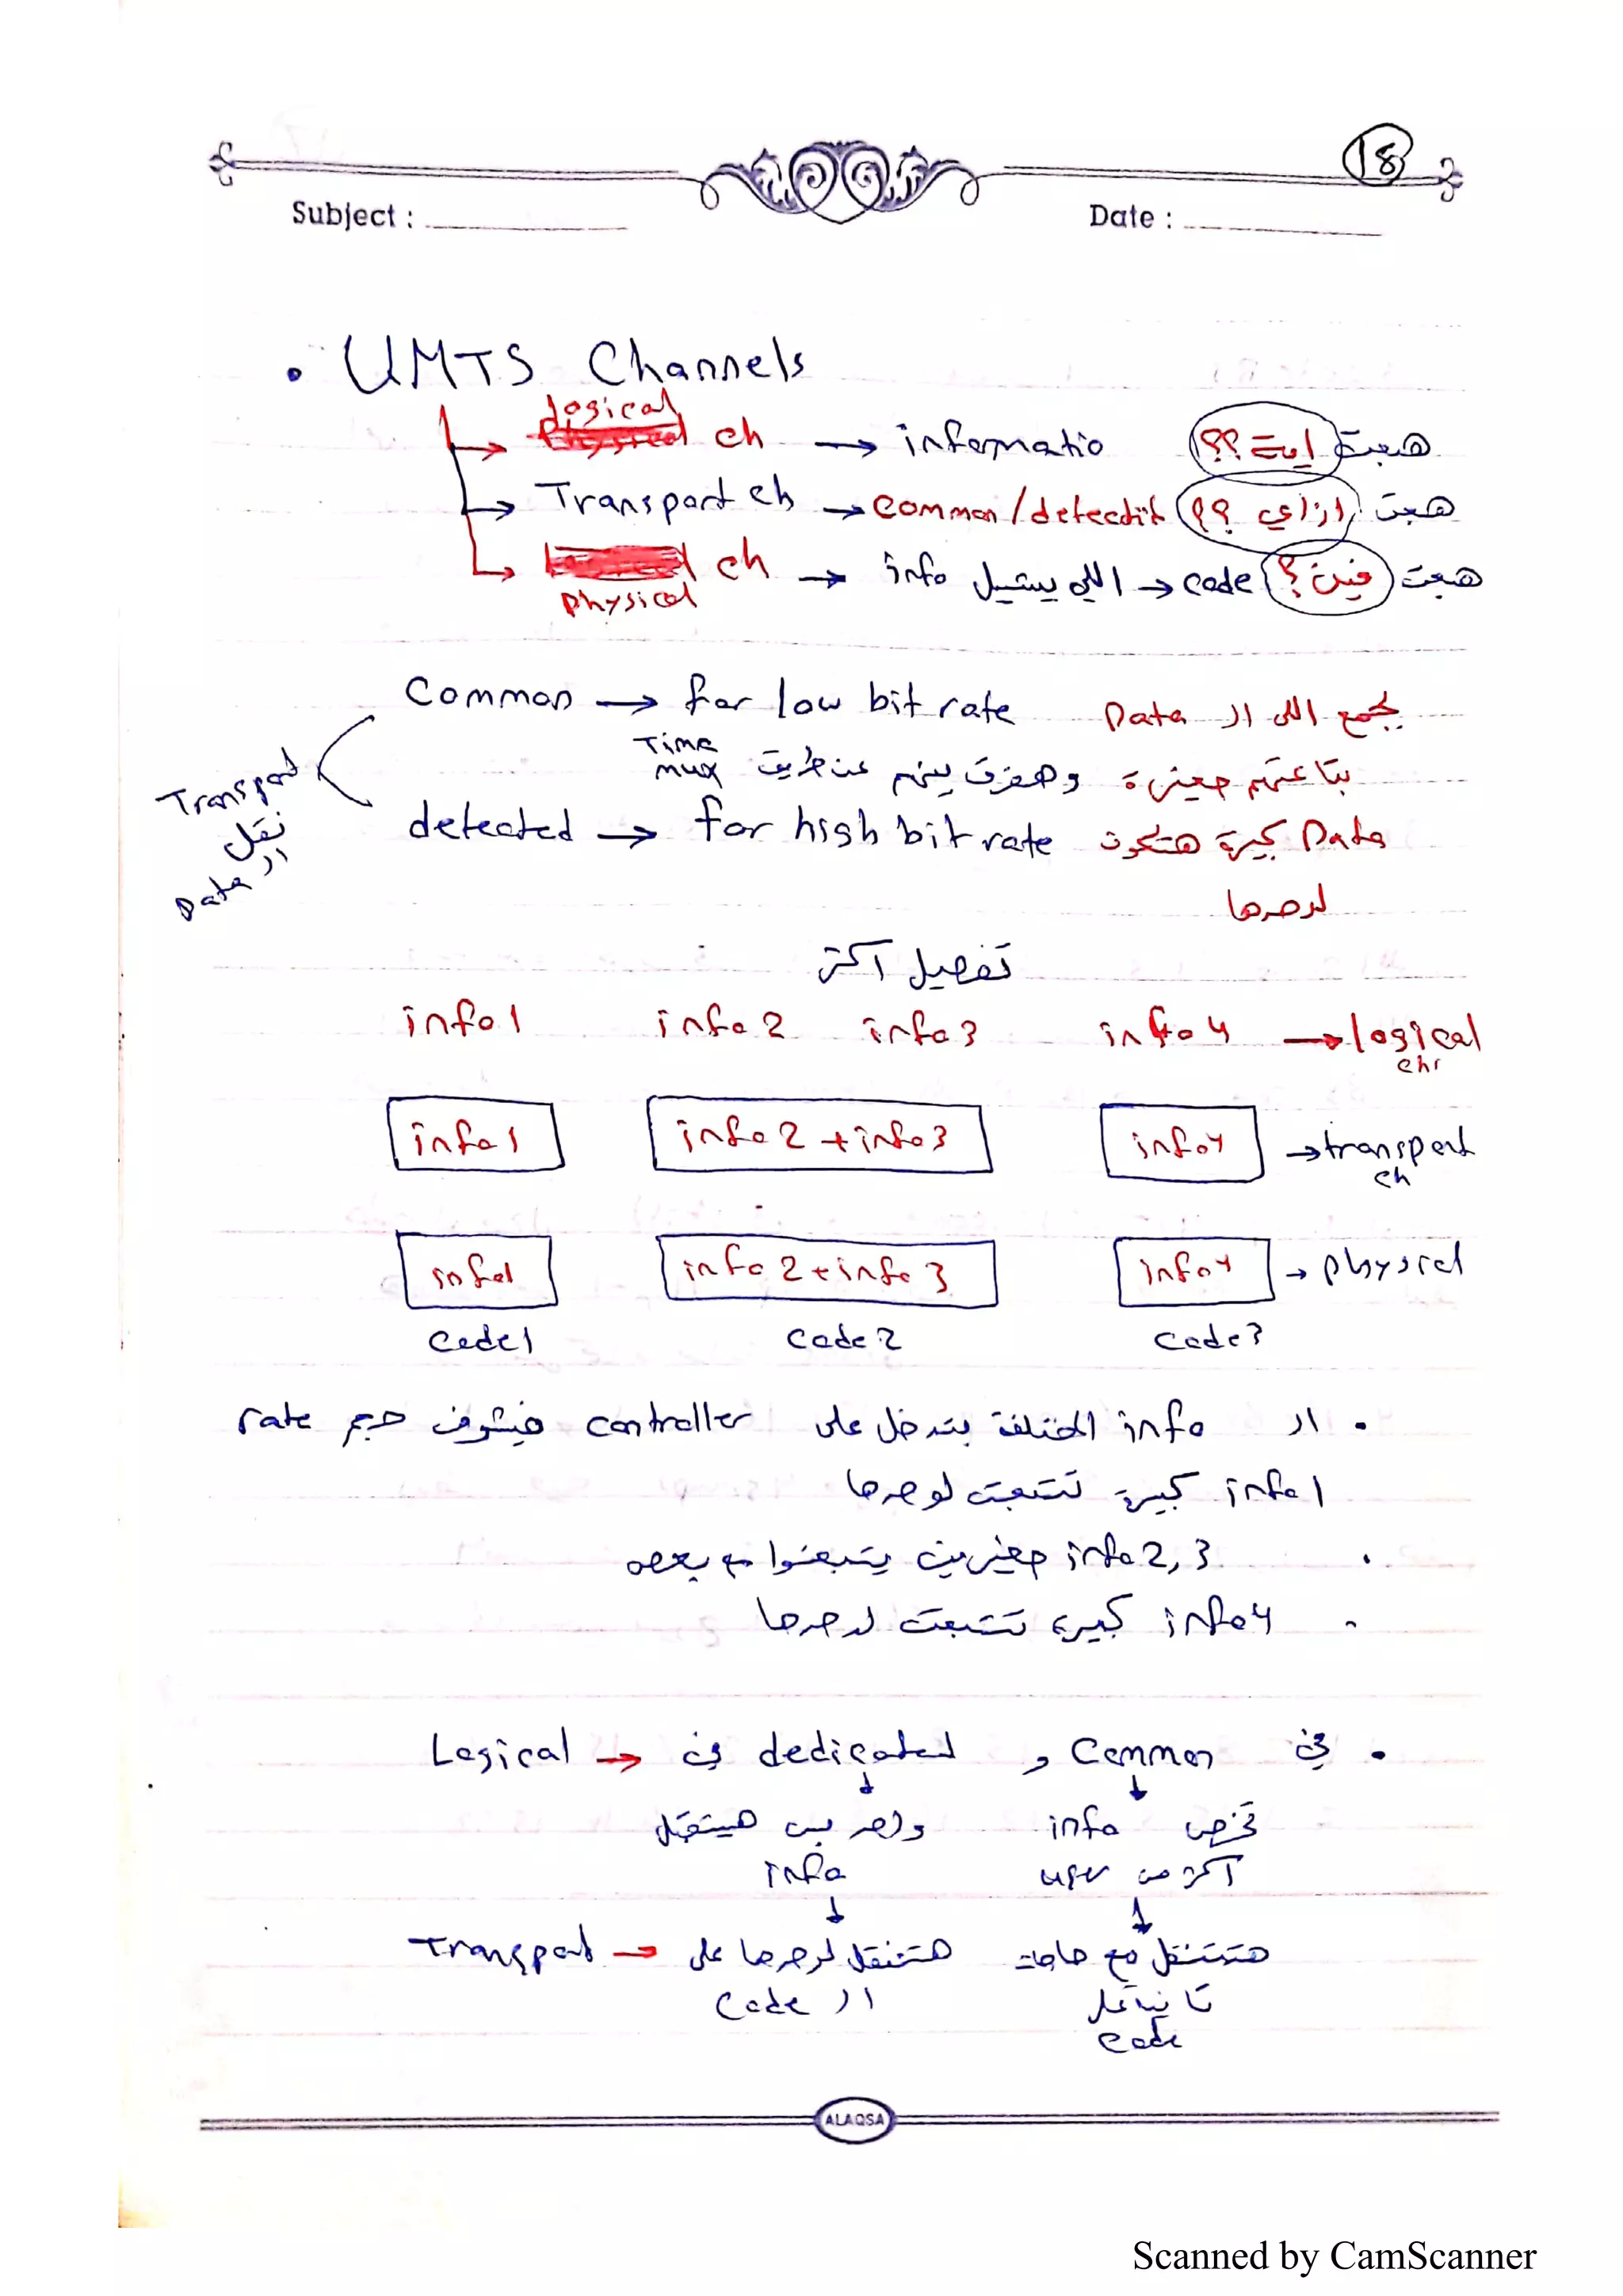 18
Subject :
Date :
• UMTS Channels
logical ch → informatio هبعت ايه ؟؟
Transport ch → common / detectit هبعت ازاي ؟؟
physical ch → info اللي بيشيل → code هبعت فين ؟
Common → for low bit rate يجمع اللى ال Data
بتاعتهم صغيرة وهفرق بينهم عن طريق Time mux
Transport
نقل
ال Data
detected → for high bit rate Data كبيرة هتكون
لوحدها
تفصيل أكتر
info 1 info 2 info 3 info 4 → logical chs
info 1 info 2 + info 3 info 4 → transport ch
info1 info 2 + info 3 info 4 → physical
Code1 Code 2 Code 3
• ال info المختلفة بتدخل على controller فيشوف حجم rate
info 1 كبيرة تتبعت لوحدها
• info 2, 3 صغيرين يتبعتوا مع بعض
• info 4 كبيرة تتبعت لوحدها
• في Common و dedicated في → Logical
تخص info واحد بس هيتنقل
أكتر من user info
هتتنقل مع حاجات هتتنقل لوحدها على → Transport
تانية على ال Code
Code
ALAQSA
Scanned by CamScanner